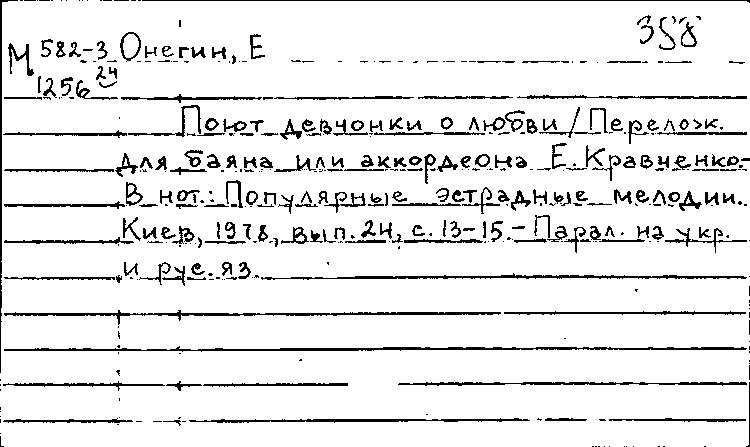 358
М 582-3 Онегин, Е
1256 24
Поют девчонки о любви / Перелож.
для баяна или аккордеона Е. Кравченко.-
В нот.: Популярные эстрадные мелодии.
Киев, 1978, вып. 24, с. 13-15.- Парал. на укр.
и рус. яз.